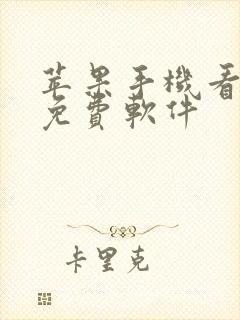 苹果手機看
免費軟件
卡里克